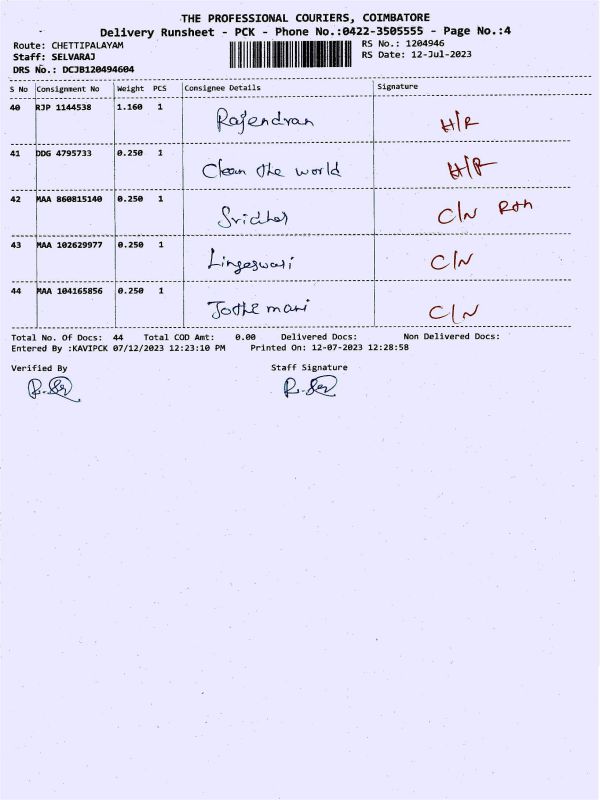 THE PROFESSIONAL COURIERS, COIMBATORE
Delivery Runsheet - PCK - Phone No.:0422-3505555 - Page No.:4
Route: CHETTIPALAYAM
RS No.: 1204946
Staff: SELVARAJ
RS Date: 12-Jul-2023
DRS No.: DCJB120494604
S No Consignment No Weight PCS Consignee Details Signature
40 RJP 1144538 1.160 1 Rajendran H/R
41 DDG 4795733 0.250 1 Clean the world H/R
42 MAA 860815140 0.250 1 Sridhar C/N
43 MAA 102629977 0.250 1 Lingeswari C/N
44 MAA 104165856 0.250 1 Jothi mani C/N
Total No. Of Docs: 44 Total COD Amt: 0.00 Delivered Docs: Non Delivered Docs:
Entered By :KAVIPCK 07/12/2023 12:23:10 PM Printed On: 12-07-2023 12:28:58
Verified By Staff Signature